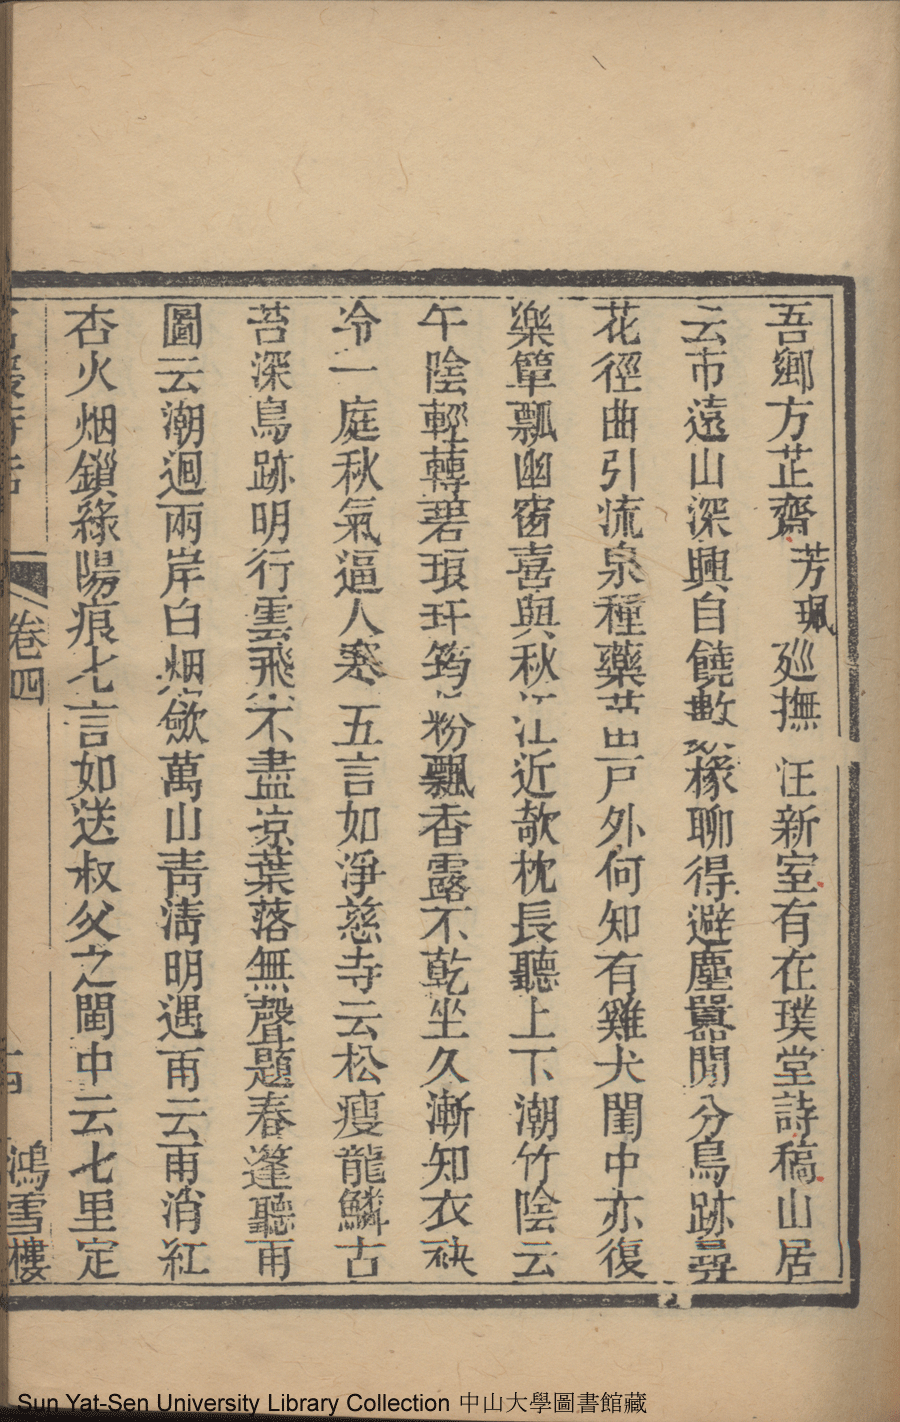 吾鄉方芷齋芳珮廵撫汪新室有在璞堂詩稿山居
云市遠山深興自饒數椽聊得避塵囂閒分鳥跡尋
花徑曲引流泉種藥苗戸外何知有雞犬閨中亦復
樂簞瓢幽窗喜與秋江近欹枕長聽上下潮竹陰云
午陰輕轉碧琅玕筠粉飄香露不乾坐久漸知衣袂
冷一庭秋氣逼人寒五言如淨慈寺云松瘦龍鱗古
苔深鳥跡明行雲飛不盡凉葉落無聲題春篷聽雨
圖云潮迴兩岸白烟斂萬山青淸明遇雨云雨消紅
杏火烟鎖綠陽痕七言如送叔父之閩中云七里定
名媛詩話 卷四 十四 鴻雪樓
Sun Yat-Sen University Library Collection 中山大學圖書館藏